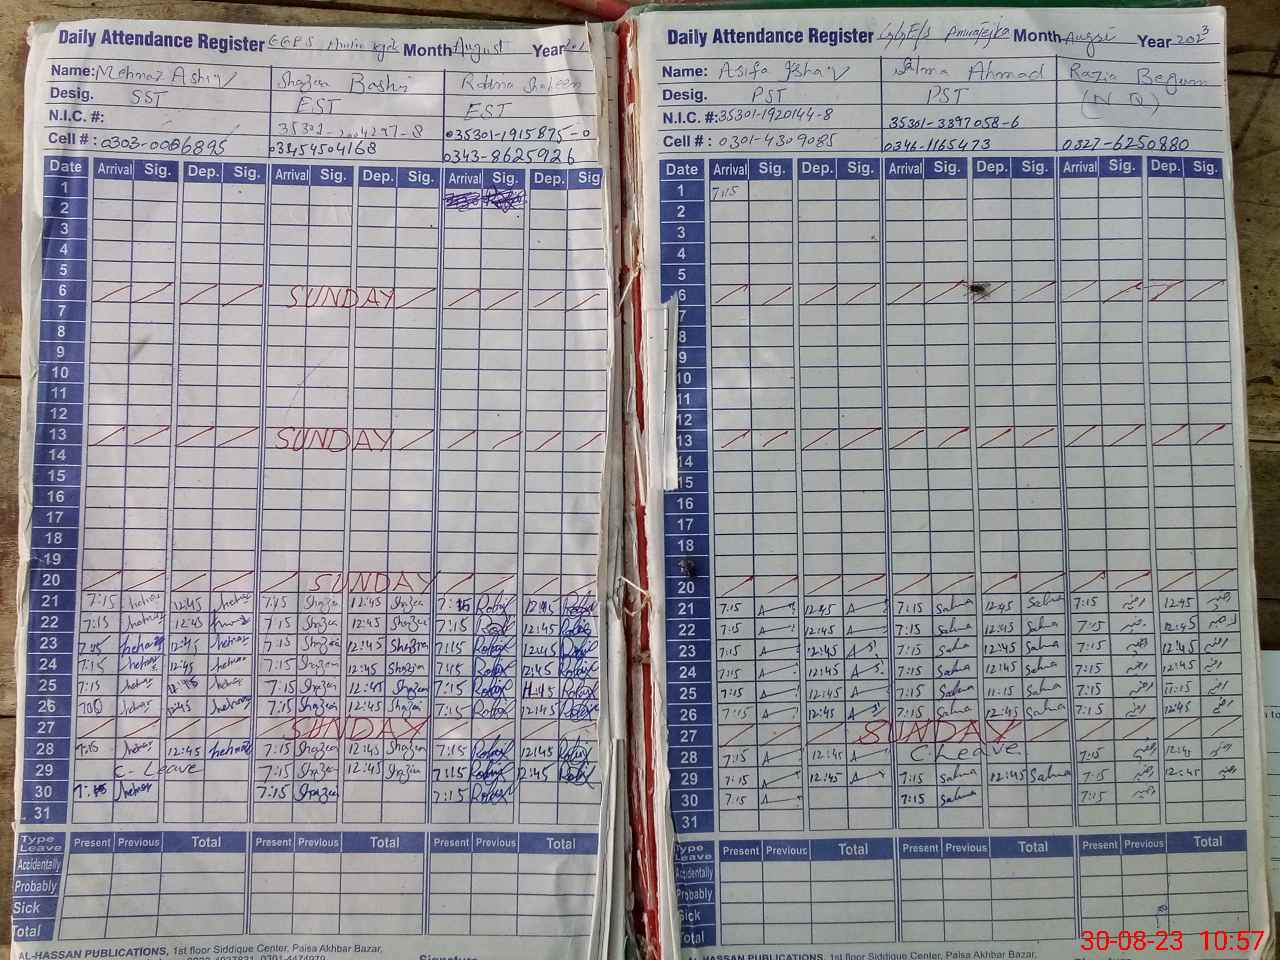 Daily Attendance Register GGPS Month August Year
Name: Mehnaz Ashiq Shazea Bashir Robina Shaheen
Desig. SST EST EST
N.I.C. #: 35301-2004297-8 35301-1915875-0
Cell #: 0303-0086895 03454504168 0343-8625926
Date Arrival Sig. Dep. Sig. Arrival Sig. Dep. Sig. Arrival Sig. Dep. Sig
1
2
3
4
5
6 SUNDAY
7
8
9
10
11
12
13 SUNDAY
14
15
16
17
18
19
20 SUNDAY
21 7:15 Mehnaz 12:45 Mehnaz 7:15 Shazea 12:45 Shazea 7:15 Robina 12:45 Robina
22 7:15 Mehnaz 12:45 Mehnaz 7:15 Shazea 12:45 Shazea 7:15 Robina 12:45 Robina
23 7:15 Mehnaz 12:45 Mehnaz 7:15 Shazea 12:45 Shazea 7:15 Robina 12:45 Robina
24 7:15 Mehnaz 12:45 Mehnaz 7:15 Shazea 12:45 Shazea 7:15 Robina 12:45 Robina
25 7:15 Mehnaz Mehnaz 7:15 Shazea 12:45 Shazea 7:15 Robina 11:15 Robina
26 Mehnaz 12:45 Mehnaz 7:15 Shazea 12:45 Shazea 7:15 Robina 12:45 Robina
27 SUNDAY
28 7:15 Mehnaz 12:45 Mehnaz 7:15 Shazea 12:45 Shazea 7:15 Robina 12:45 Robina
29 C-Leave 7:15 Shazea 12:45 Shazea 7:15 Robina 12:45 Robina
30 7:15 Mehnaz 7:15 Shazea 7:15 Robina
31
Type Leave Present Previous Total Present Previous Total Present Previous Total
Accidentally
Probably
Sick
Total
AL-HASSAN PUBLICATIONS, 1st floor Siddique Center, Paisa Akhbar Bazar,
Daily Attendance Register GGE/S Month August Year 2023
Name: Asifa Ishaq Salma Ahmad Razia Begum
Desig. PST PST (N Q)
N.I.C. #: 35301-1920144-8 35301-3397058-6
Cell #: 0301-4309085 0346-1165473 0327-6250880
Date Arrival Sig. Dep. Sig. Arrival Sig. Dep. Sig. Arrival Sig. Dep. Sig.
1 7:15
2
3
4
5
6
7
8
9
10
11
12
13
14
15
16
17
18
19
20
21 7:15 12:45 7:15 Salma 12:45 Salma 7:15 رضیہ 12:45 رضیہ
22 7:15 12:45 7:15 Salma 12:45 Salma 7:15 رضیہ 12:45 رضیہ
23 7:15 12:45 7:15 Salma 12:45 Salma 7:15 رضیہ 12:45 رضیہ
24 7:15 12:45 7:15 Salma 12:45 Salma 7:15 رضیہ 12:45 رضیہ
25 7:15 12:45 7:15 Salma 11:15 Salma 7:15 رضیہ 11:15 رضیہ
26 7:15 12:45 7:15 Salma 12:45 Salma 7:15 رضیہ 12:45 رضیہ
27 SUNDAY
28 7:15 12:45 C Leave 7:15 رضیہ 12:45 رضیہ
29 7:15 12:45 7:15 Salma 12:45 Salma 7:15 رضیہ 12:45 رضیہ
30 7:15 7:15 Salma 7:15 رضیہ
31
Type Leave Present Previous Total Present Previous Total Present Previous Total
Accidentally
Probably
Sick
Total
AL-HASSAN PUBLICATIONS, 1st floor Siddique Center, Paisa Akhbar Bazar,
30-08-23 10:57